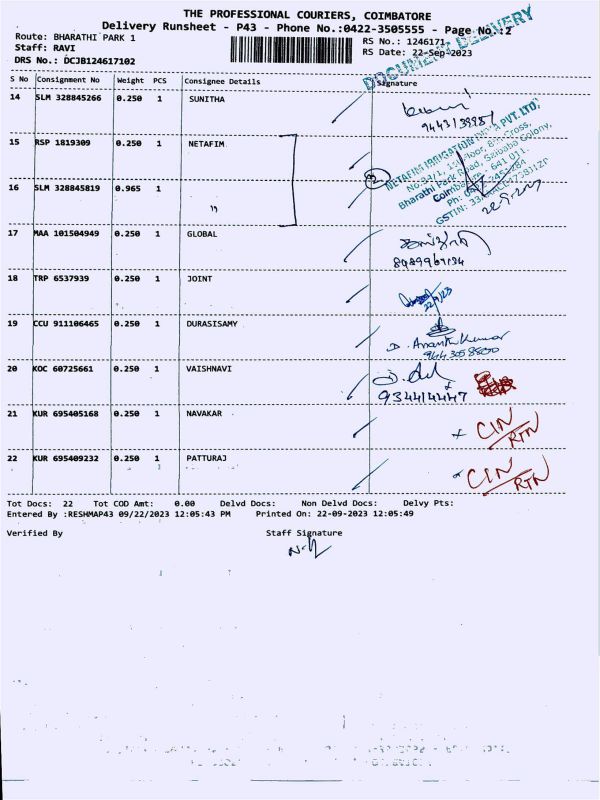 THE PROFESSIONAL COURIERS, COIMBATORE
Delivery Runsheet - P43 - Phone No.:0422-3505555 - Page No.:2
Route: BHARATHI PARK 1
RS No.: 1246171
Staff: RAVI
RS Date: 22-Sep-2023
DRS No.: DCJB124617102
DOCUMENT DELIVERY
S No Consignment No Weight PCS Consignee Details Signature
14 SLM 328845266 0.250 1 SUNITHA
15 RSP 1819309 0.250 1 NETAFIM
NETAFIM IRRIGATION INDIA PVT. LTD.
Bharathi Park Road, Saibaba Colony,
16 SLM 328845819 0.965 1 "
17 MAA 101504949 0.250 1 GLOBAL
18 TRP 6537939 0.250 1 JOINT
22/9/23
19 CCU 911106465 0.250 1 DURASISAMY
D. Ananthkumar
9443058800
20 KOC 60725661 0.250 1 VAISHNAVI
934414447
21 KUR 695405168 0.250 1 NAVAKAR
CIN/RTN
22 KUR 695409232 0.250 1 PATTURAJ
CIN/RTN
Tot Docs: 22 Tot COD Amt: 0.00 Delvd Docs: Non Delvd Docs: Delvy Pts:
Entered By :RESHMAP43 09/22/2023 12:05:43 PM Printed On: 22-09-2023 12:05:49
Verified By Staff Signature